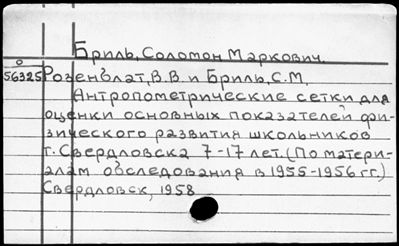 Бриль, Соломон Маркович.
О
56325 Розенблат, В.В. и Бриль, С.М.
Антропометрические сетки для
оценки основных показателей фи-
зического развития школьников
г. Свердловска 7-17 лет. (По матери-
алам обследования в 1955-1956 гг.)
Свердловск, 1958